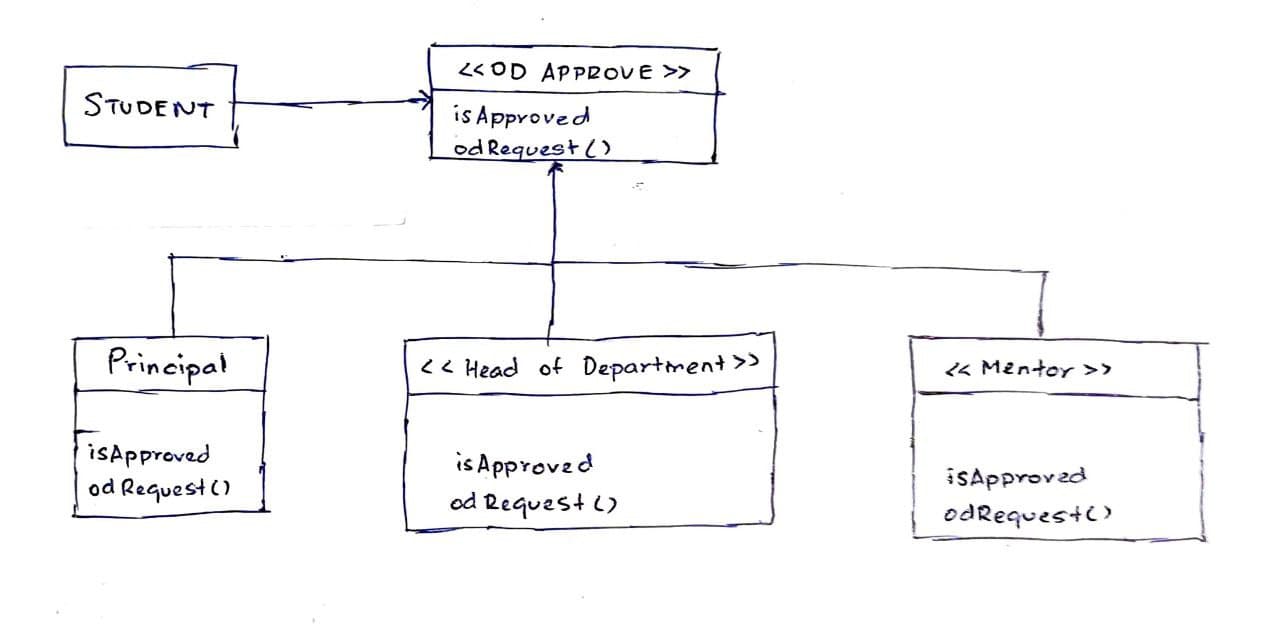 STUDENT
<<OD APPROVE>>
isApproved
odRequest()
Principal
isApproved
odRequest()
<<Head of Department>>
isApproved
odRequest()
<<Mentor>>
isApproved
odRequest()